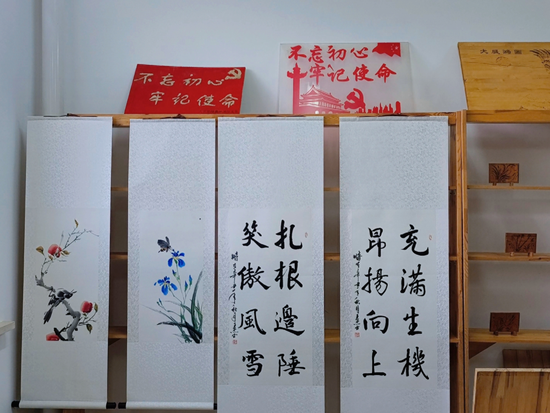 不忘初心
牢记使命
不忘初心
牢记使命
扎根邊陲
笑傲風雪
充滿生機
昂揚向上